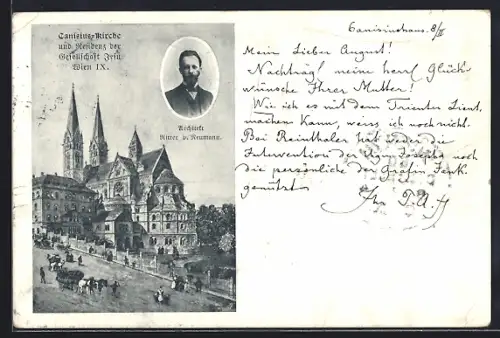 Canisius-Kirche
und Residenz der
Gesellschaft Jesu
Wien IX.
Architekt
Ritter v. Neumann.
Canisiushaus. 8/II
Mein Lieber August!
Nachträgl. meine herzl Glück-
wünsche Ihrer Mutter!
Wie ich es mit dem Trienter
machen kann, weiss ich noch nicht.
Bei Rainthaler hat weder die
Intervention der noch
die persönliche der Gräfin
genützt.
Ihr